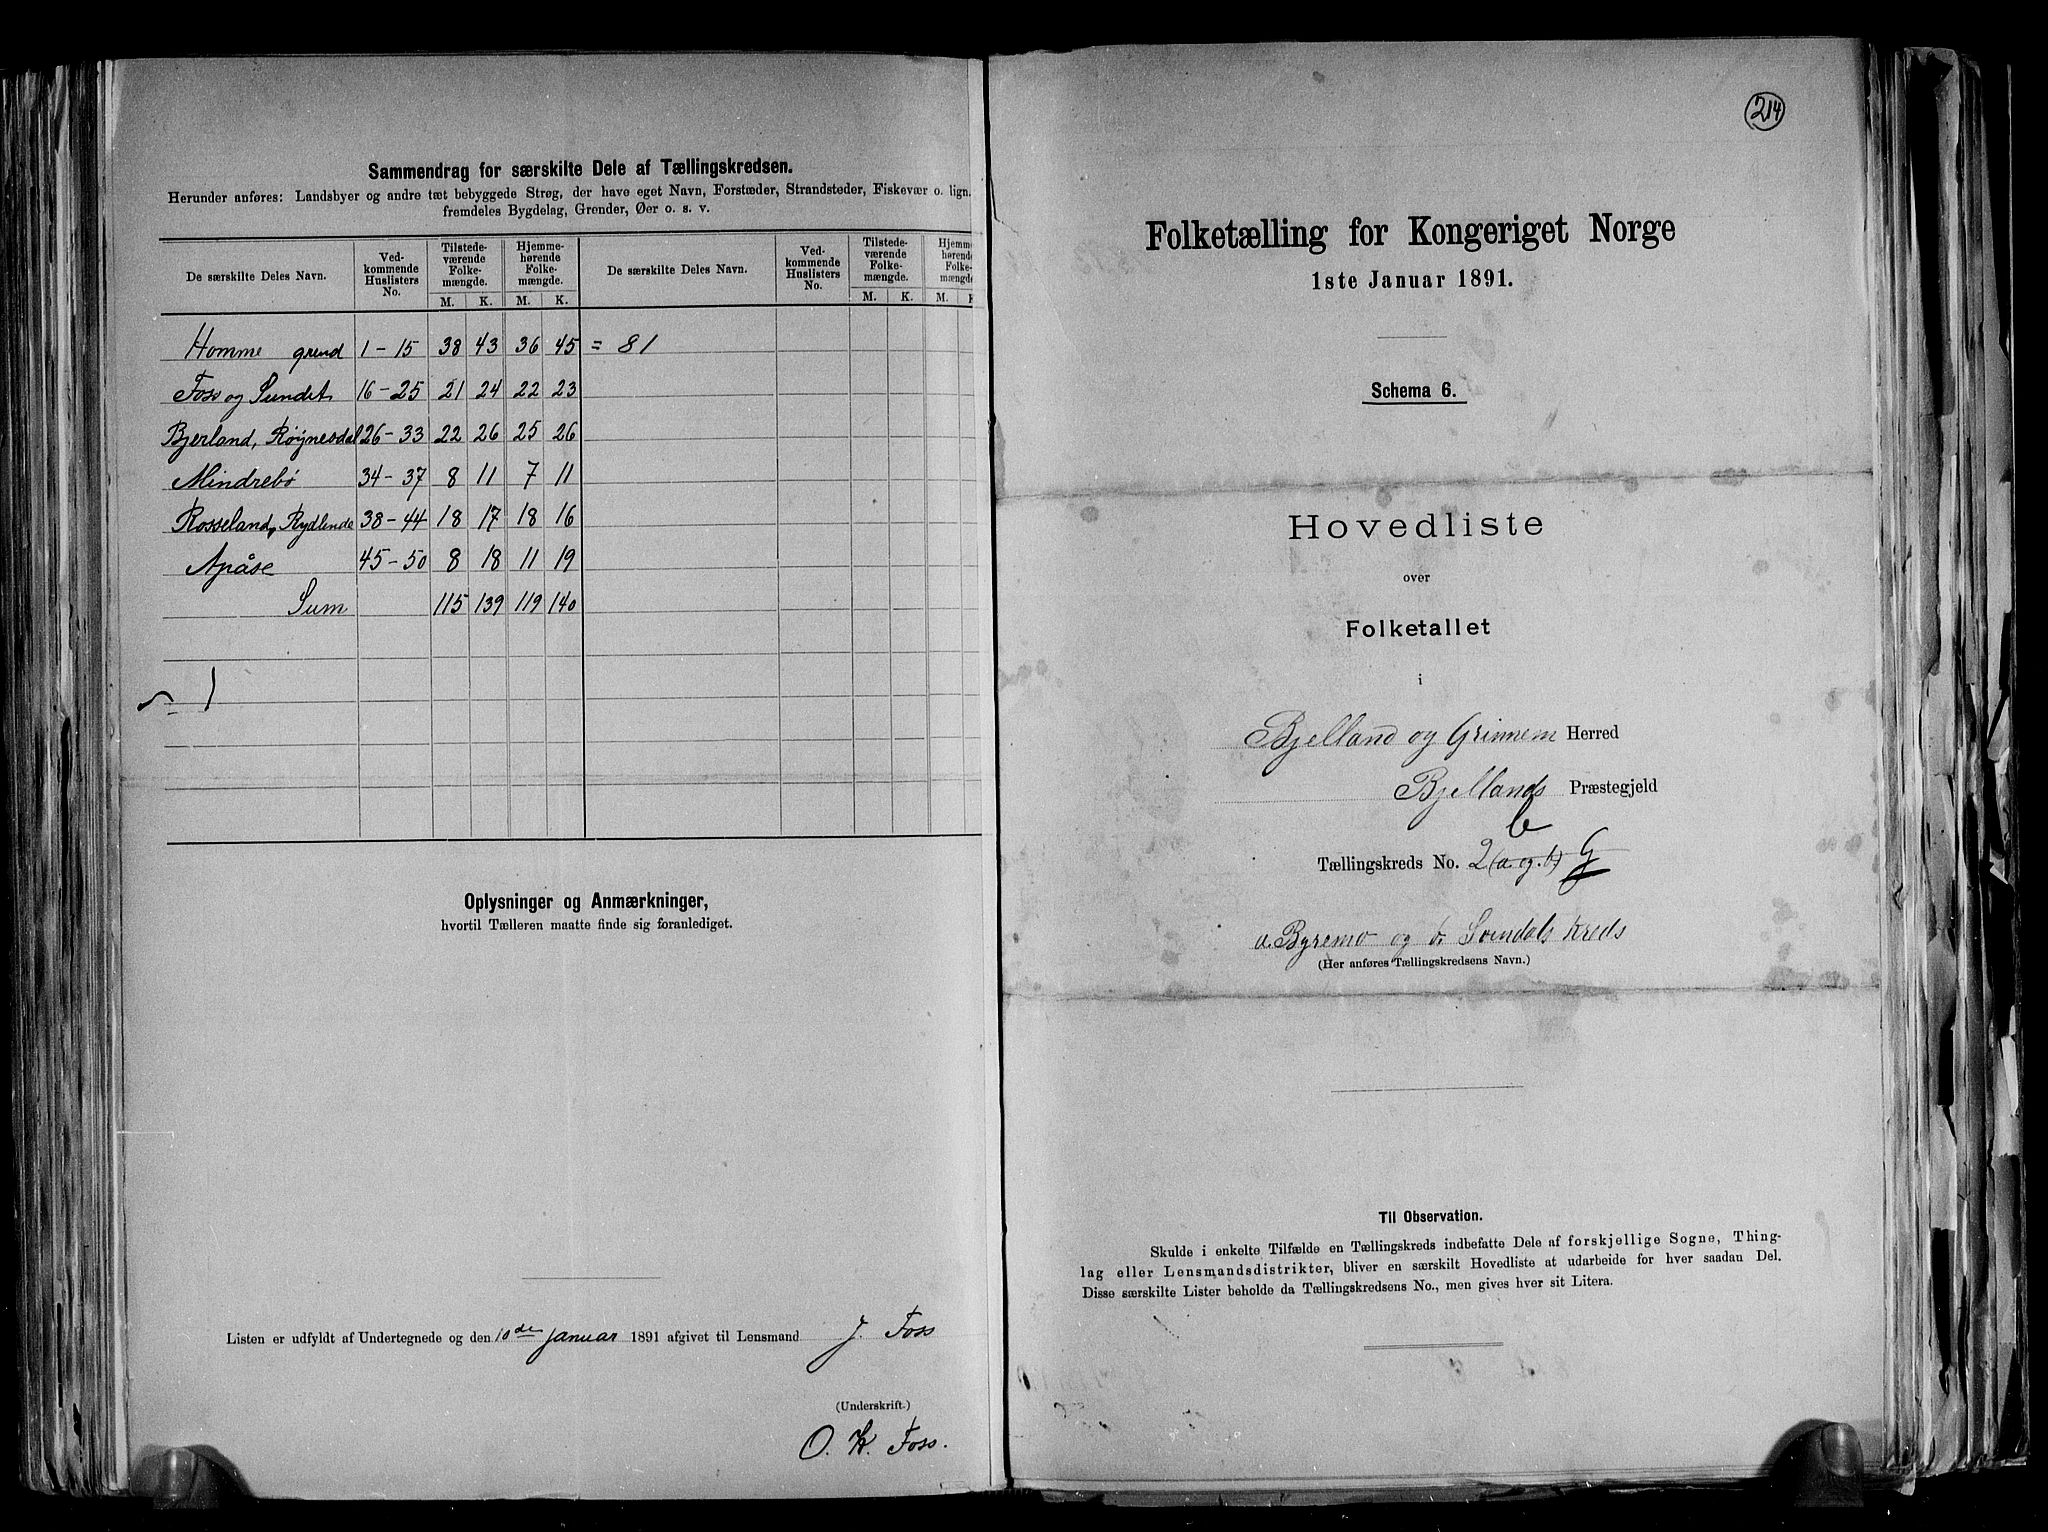 Sammendrag for særskilte Dele af Tællingskredsen.
Herunder anføres: Landsbyer og andre tæt bebyggede Strøg, der have eget Navn, Forstæder, Strandsteder, Fiskevær o. lign.
fremdeles Bygdelag, Grender, Øer o. s. v.
De særskilte Deles Navn. Ved-kommende Huslisters No. Tilstede-værende Folke-mængde. Hjemme-hørende Folke-mængde. De særskilte Deles Navn. Ved-kommende Huslisters No. Tilstede-værende Folke-mængde. Hjemme-hørende Folke-mængde.
M. K. M. K. M. K. M. K
Homme grend 1-15 38 43 36 45 = 81
Foss og Sundet 16-25 21 24 22 23
Bjerland, Røynesdal 26-33 22 26 25 26
Mindrebø 34-37 8 11 7 11
Rosseland, Rydlende 38-44 18 17 18 16
Apåse 45-50 8 18 11 19
Sum 115 139 119 140
Oplysninger og Anmærkninger,
hvortil Tælleren maatte finde sig foranlediget.
Listen er udfyldt af Undertegnede og den 10de Januar 1891 afgivet til Lensmand J. Foss
(Underskrift.)
O. K. Foss.
214
Folketælling for Kongeriget Norge
1ste Januar 1891.
Schema 6.
Hovedliste
over
Folketallet
i
Bjelland og Grinnem Herred
Bjellands Præstegjeld
b
Tællingskreds No. 2 (a og b) G
a. Byremo og b. Sveindals Kreds
(Her anføres Tællingskredsens Navn.)
Til Observation.
Skulde i enkelte Tilfælde en Tællingskreds indbefatte Dele af forskjellige Sogne, Thing-
lag eller Lensmandsdistrikter, bliver en særskilt Hovedliste at udarbeide for hver saadan Del.
Disse særskilte Lister beholde da Tællingskredsens No., men gives hver sit Litera.